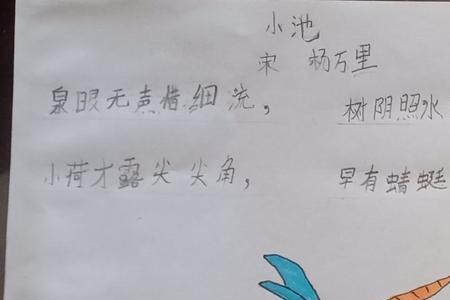 小池
宋 杨万里
泉眼无声惜细流， 树阴照水
小荷才露尖尖角， 早有蜻蜓